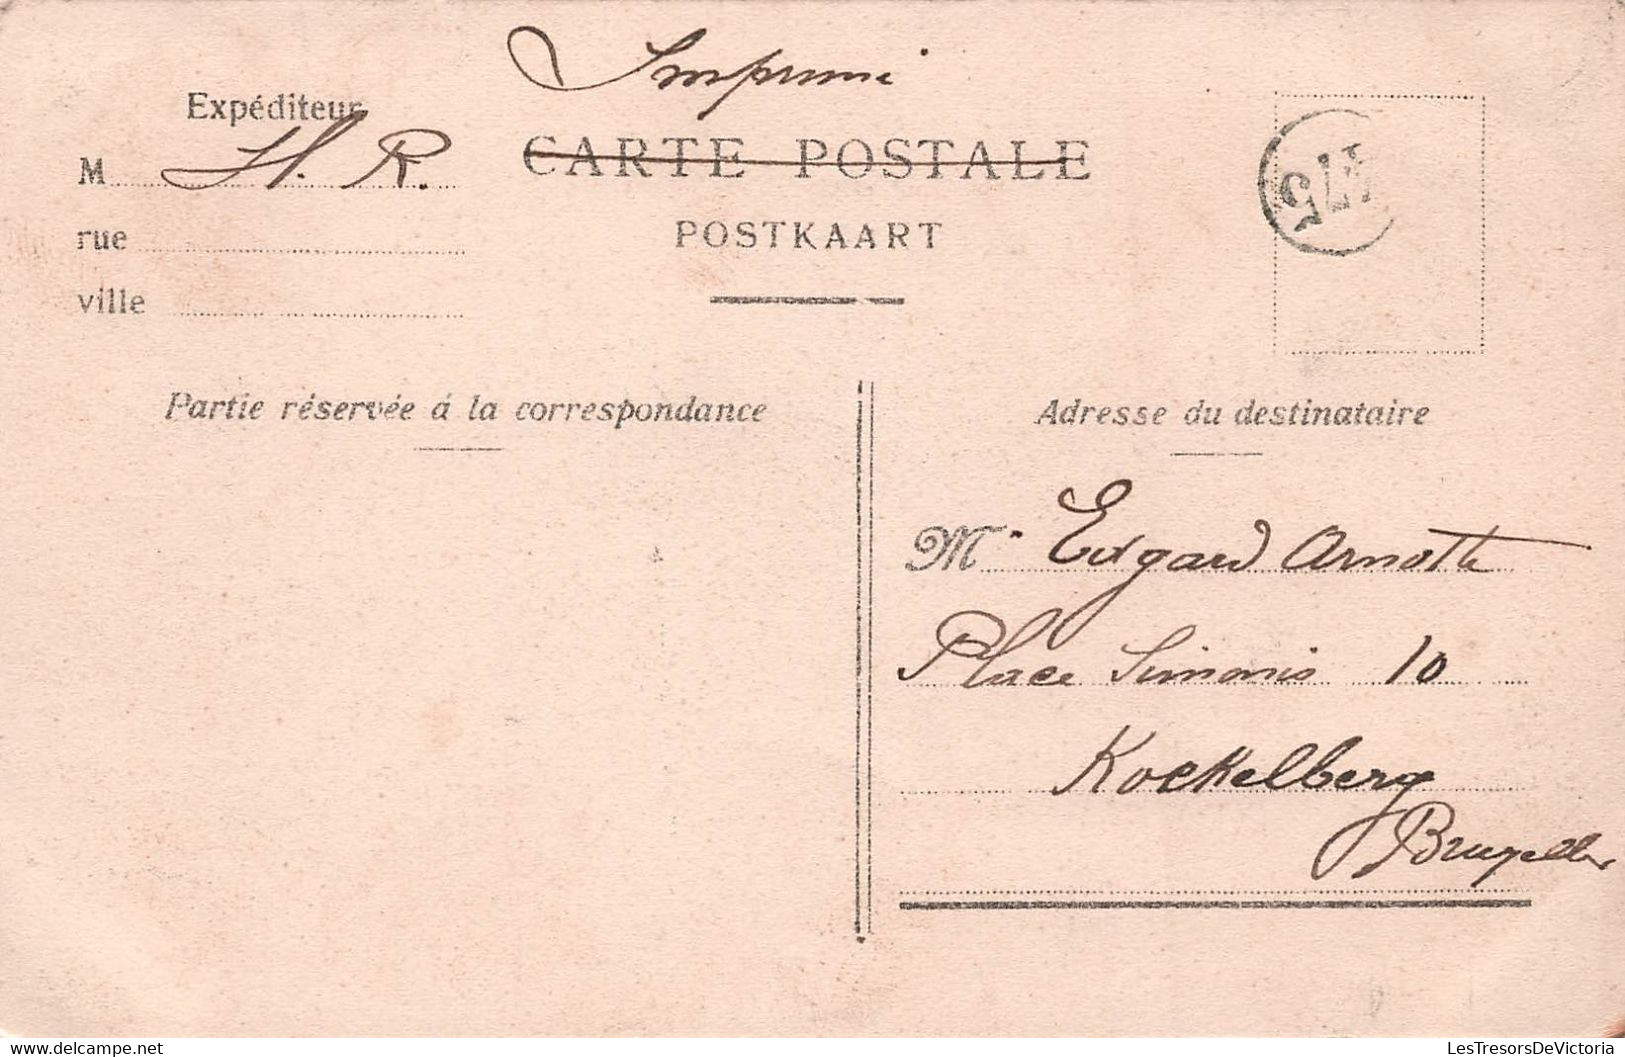 Imprimé
Expéditeur
CARTE POSTALE
M H. R.
POSTKAART
rue
ville
Partie réservée á la correspondance
Adresse du destinataire
M. Edgard Arnoth
Place Simonis 10
Koekelberg
Bruxelles
delcampe.net
LesTresorsDeVictoria